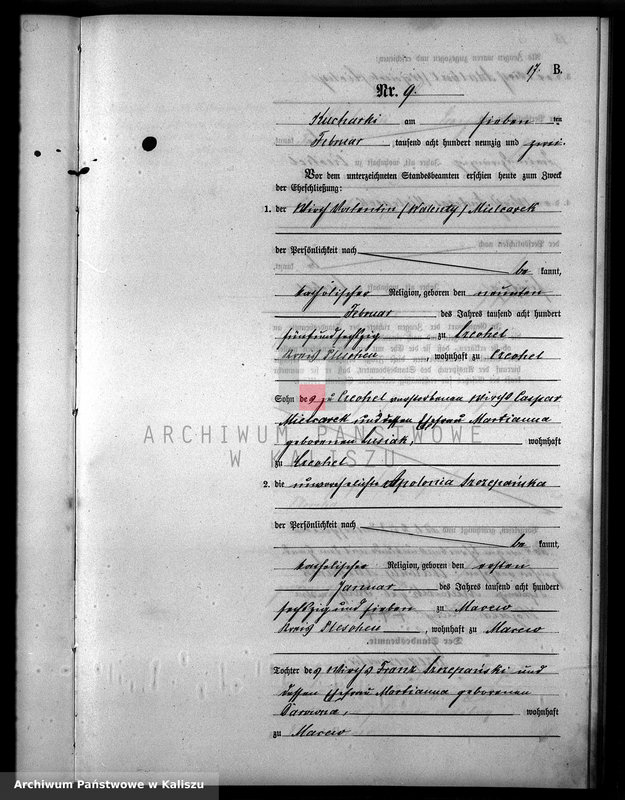 17. B.
Nr. 9.
Kucharki am sieben ten
Februar, tausend acht hundert neunzig und zwei.
Vor dem unterzeichneten Standesbeamten erschien heute zum Zweck
der Eheschließung:
1. der Wirth Valentin (Walenty) Mielcarek
der Persönlichkeit nach
be kannt,
katholischer Religion, geboren den neunten
Februar des Jahres tausend acht hundert
fünfundsechzig zu Czechel
Kreis Pleschen, wohnhaft zu Czechel
Sohn des zu Czechel verstorbenen Wirths Caspar
Mielcarek und dessen Ehefrau Marianna
geborenen Lusiak, wohnhaft
ARCHIWUM PAŃSTWOWE
W KALISZU
zu Czechel
2. die unverehelichte Apolonia Szczepańska
der Persönlichkeit nach
be kannt,
katholischer Religion, geboren den ersten
Januar des Jahres tausend acht hundert
sechzig und sieben zu Marew
Kreis Pleschen, wohnhaft zu Marew
Tochter des Wirths Franz Szczepański und
dessen Ehefrau Marianna geborenen
wohnhaft
zu Marew
Archiwum Państwowe w Kaliszu